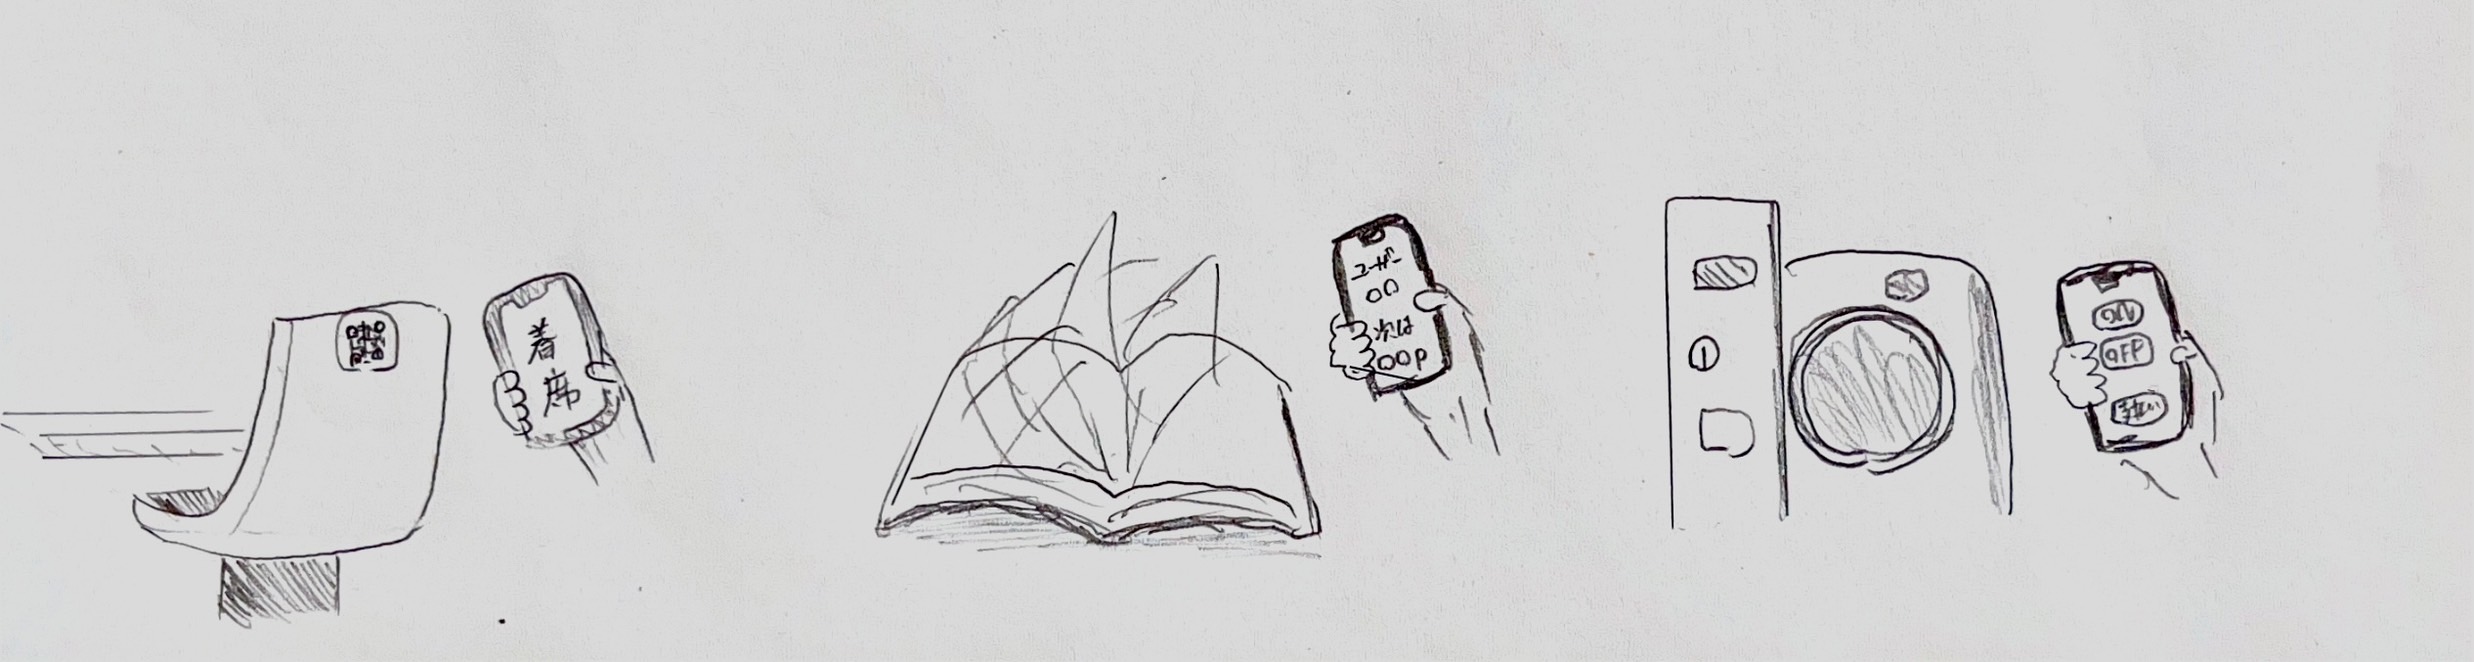 着
席
ユーザー
〇〇
次は
〇〇P
ON
OFF
支払い